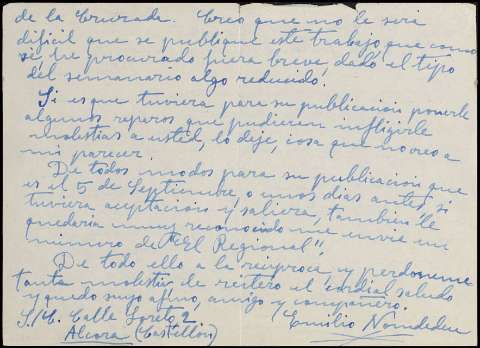 de la Cruzada. Creo que no le será
difícil que se publique este trabajo que como
se he procurado fuera breve, dado el tipo
del semanario algo reducido.
Si es que tuviera para su publicación ponerle
algunos reparos que pudieran infligirle
molestias a usted, lo deje, cosa que no creo a
mi parecer.
De todos modos para su publicación que
es el 5 de Septiembre o unos dias antes, si
tuviera aceptación y saliera, tambien le
quedaria muy reconocido me envie un
número de "El Regional".
De todo ello a la reciproca, y perdoneme
tanta molestia, le reitero el cordial saludo
y quedo suyo afmo, amigo y compañero.
S/C. Calle Loreto 2
Alcora (Castellón)
Emilio Nomdedeu